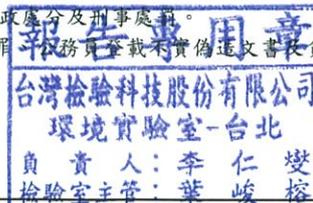 政處分及刑事處罰。
罪、公務員登載不實偽造文書及貪
報告專用章
台灣檢驗科技股份有限公司
環境實驗室-台北
負責人:李仁燮
檢驗室主管:葉峻榕